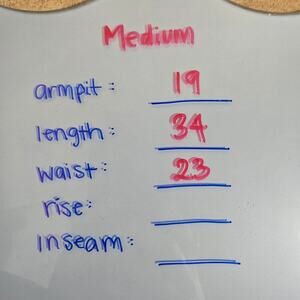 Medium
armpit: 19
length: 34
waist: 23
rise:
inseam: